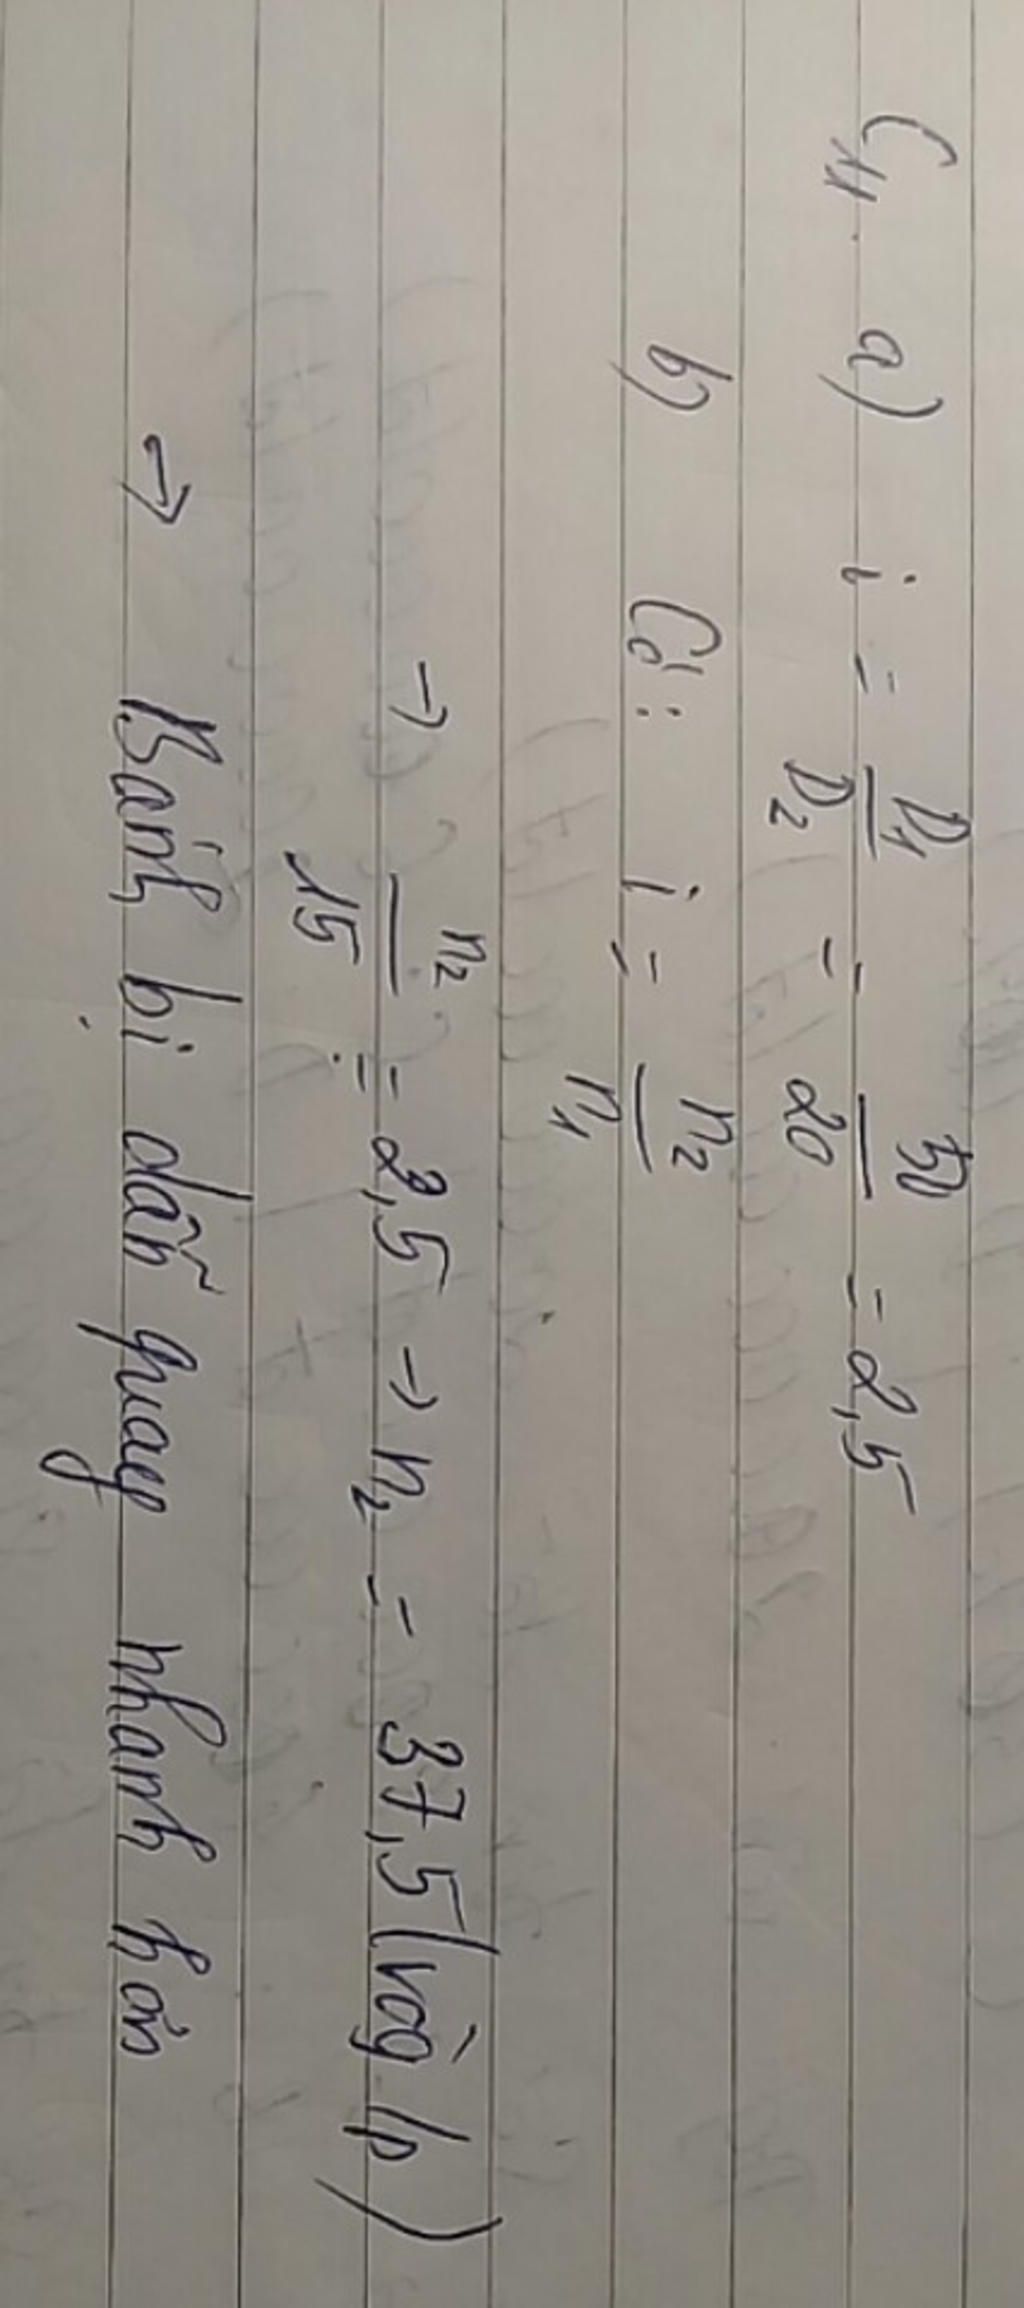 C11. a) i = D1/D2 = 50/20 = 2,5
b) Có: i = n2/n1
→ n2/15 = 2,5 → n2 = 37,5 (vòg/p)
→ Bánh bị dẫn quay nhanh hơn